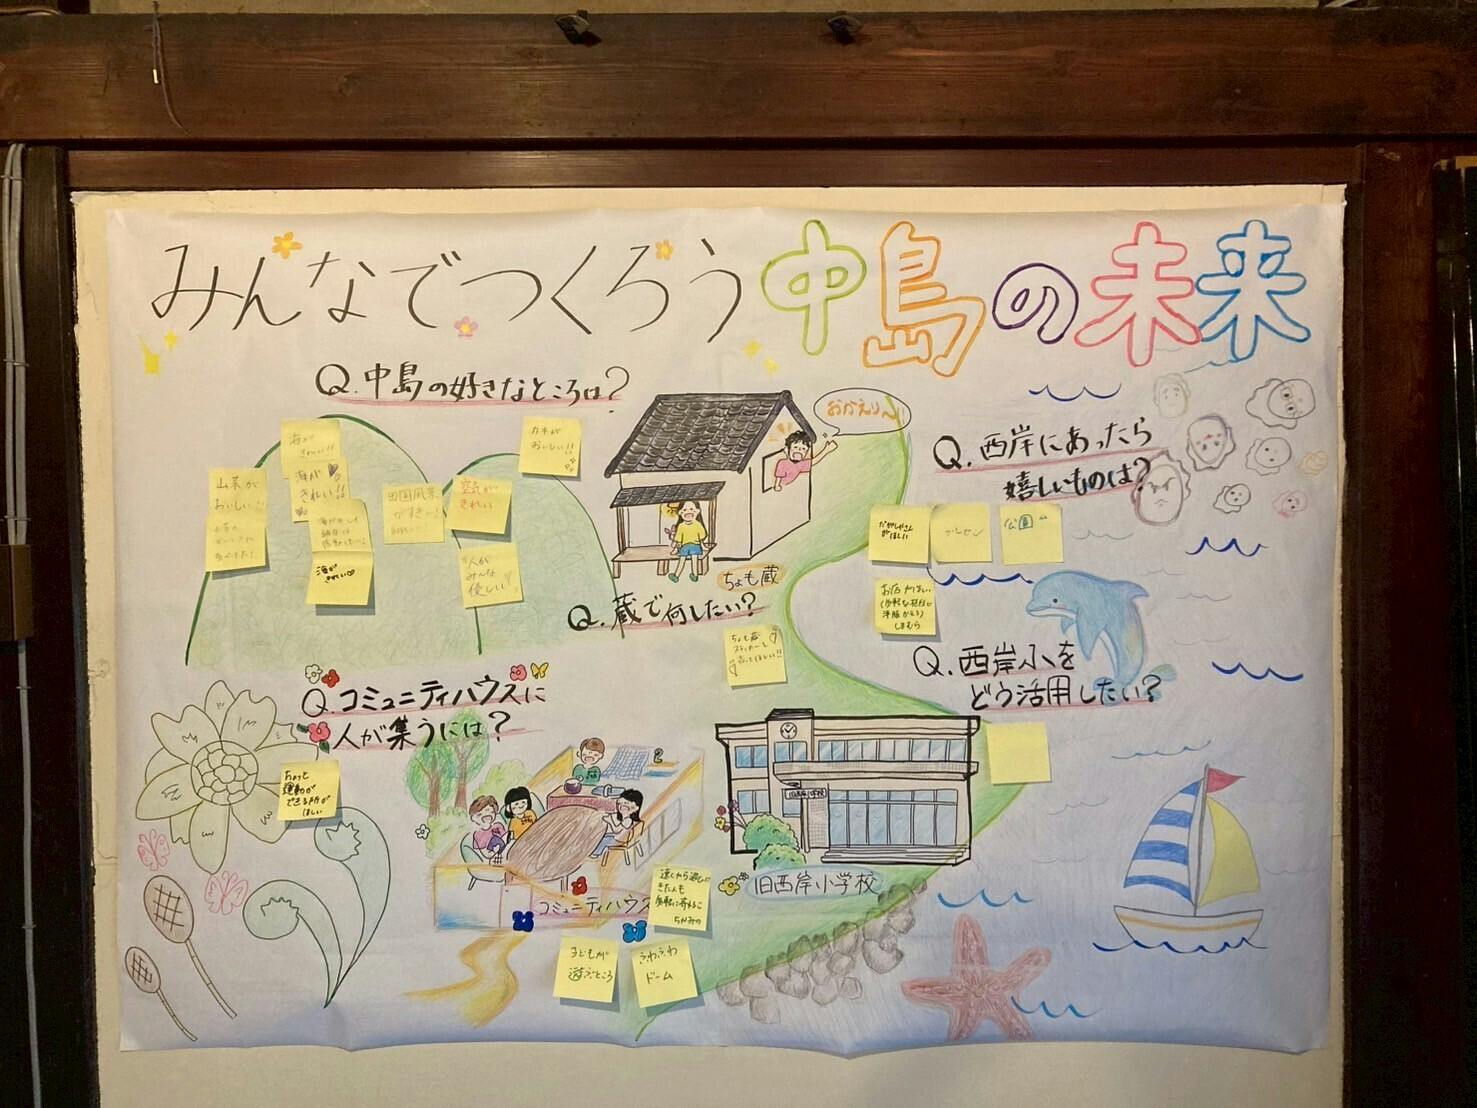 みんなでつくろう中島の未来
Q.中島の好きなところは?
海が
きれい!!
海が
きれい!!
山菜が
おいしい!!
田園風景
がすき!
空気が
きれい
カキが
おいしい!!
海が
きれい
人が
みんな
優しい
おかえり〜
ちょも蔵
Q.蔵で何したい?
ちょも蔵
ステッカーを
売ってほしい!!
Q.西岸にあったら
嬉しいものは?
だがしやさん
がほしい
ゲーセン
公園
お店がほしい
しまむら
Q.西岸小を
どう活用したい?
旧西岸小学校
旧西岸小学校
Q.コミュニティハウスに
人が集うには?
ちょっと
運動が
できる所が
ほしい
コミュニティハウス
遠くから遊びに
きた人も
気軽に寄れる
子どもが
遊ぶところ
ふわふわ
ドーム